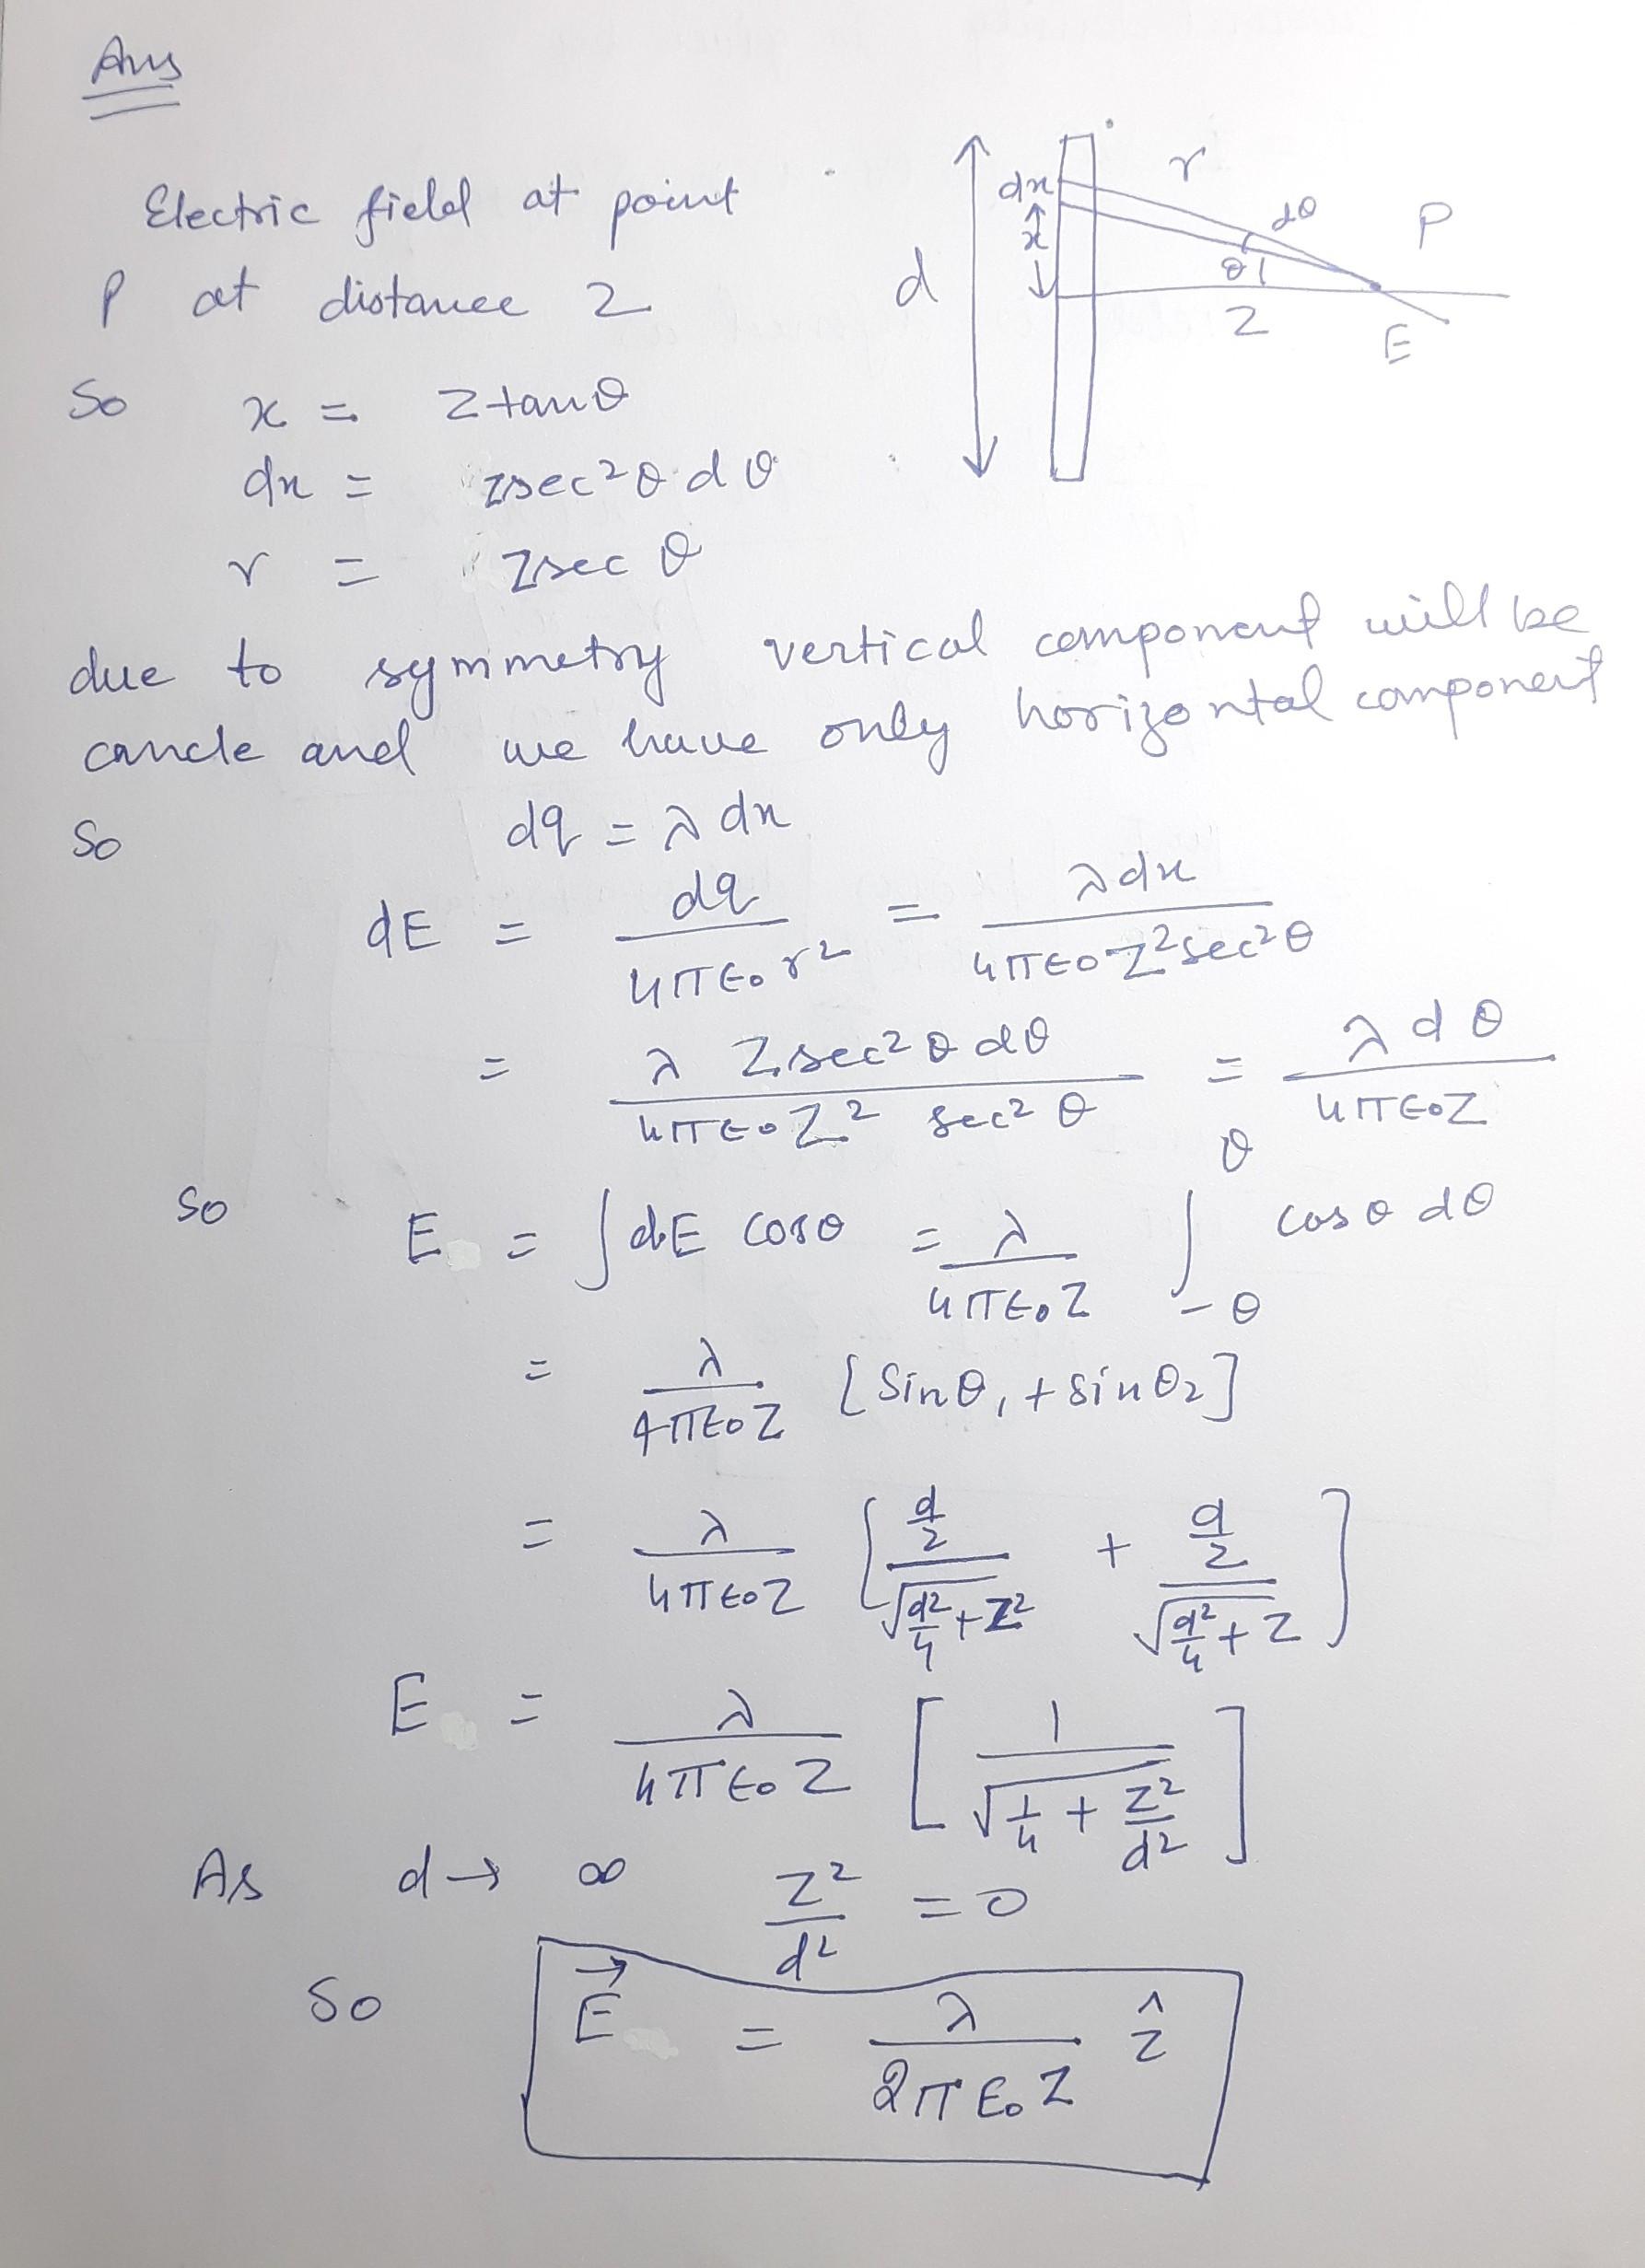 Ans
Electric field at point
P at distance z
dx
x
d
r
dθ
θ
P
z
E
So x = z tanθ
dx = zsec²θ dθ
r = zsec θ
due to symmetry vertical component will be
cancle and we have only horizontal component
So dq = λ dx
dE = dq/4πε₀r² = λdx/4πε₀z²sec²θ
= λ z sec²θ dθ/4πε₀z² sec²θ = λdθ/4πε₀z
So E = ∫dE cosθ = λ/4πε₀z ∫_{-θ}^{θ} cosθ dθ
= λ/4πε₀z [Sinθ₁ + sinθ₂]
= λ/4πε₀z [(d/2)/√(d²/4 + z²) + (d/2)/√(d²/4 + z)]
E = λ/4πε₀z [1/√(1/4 + z²/d²)]
As d → ∞ z²/d² = 0
So E⃗ = λ/2πε₀z ẑ